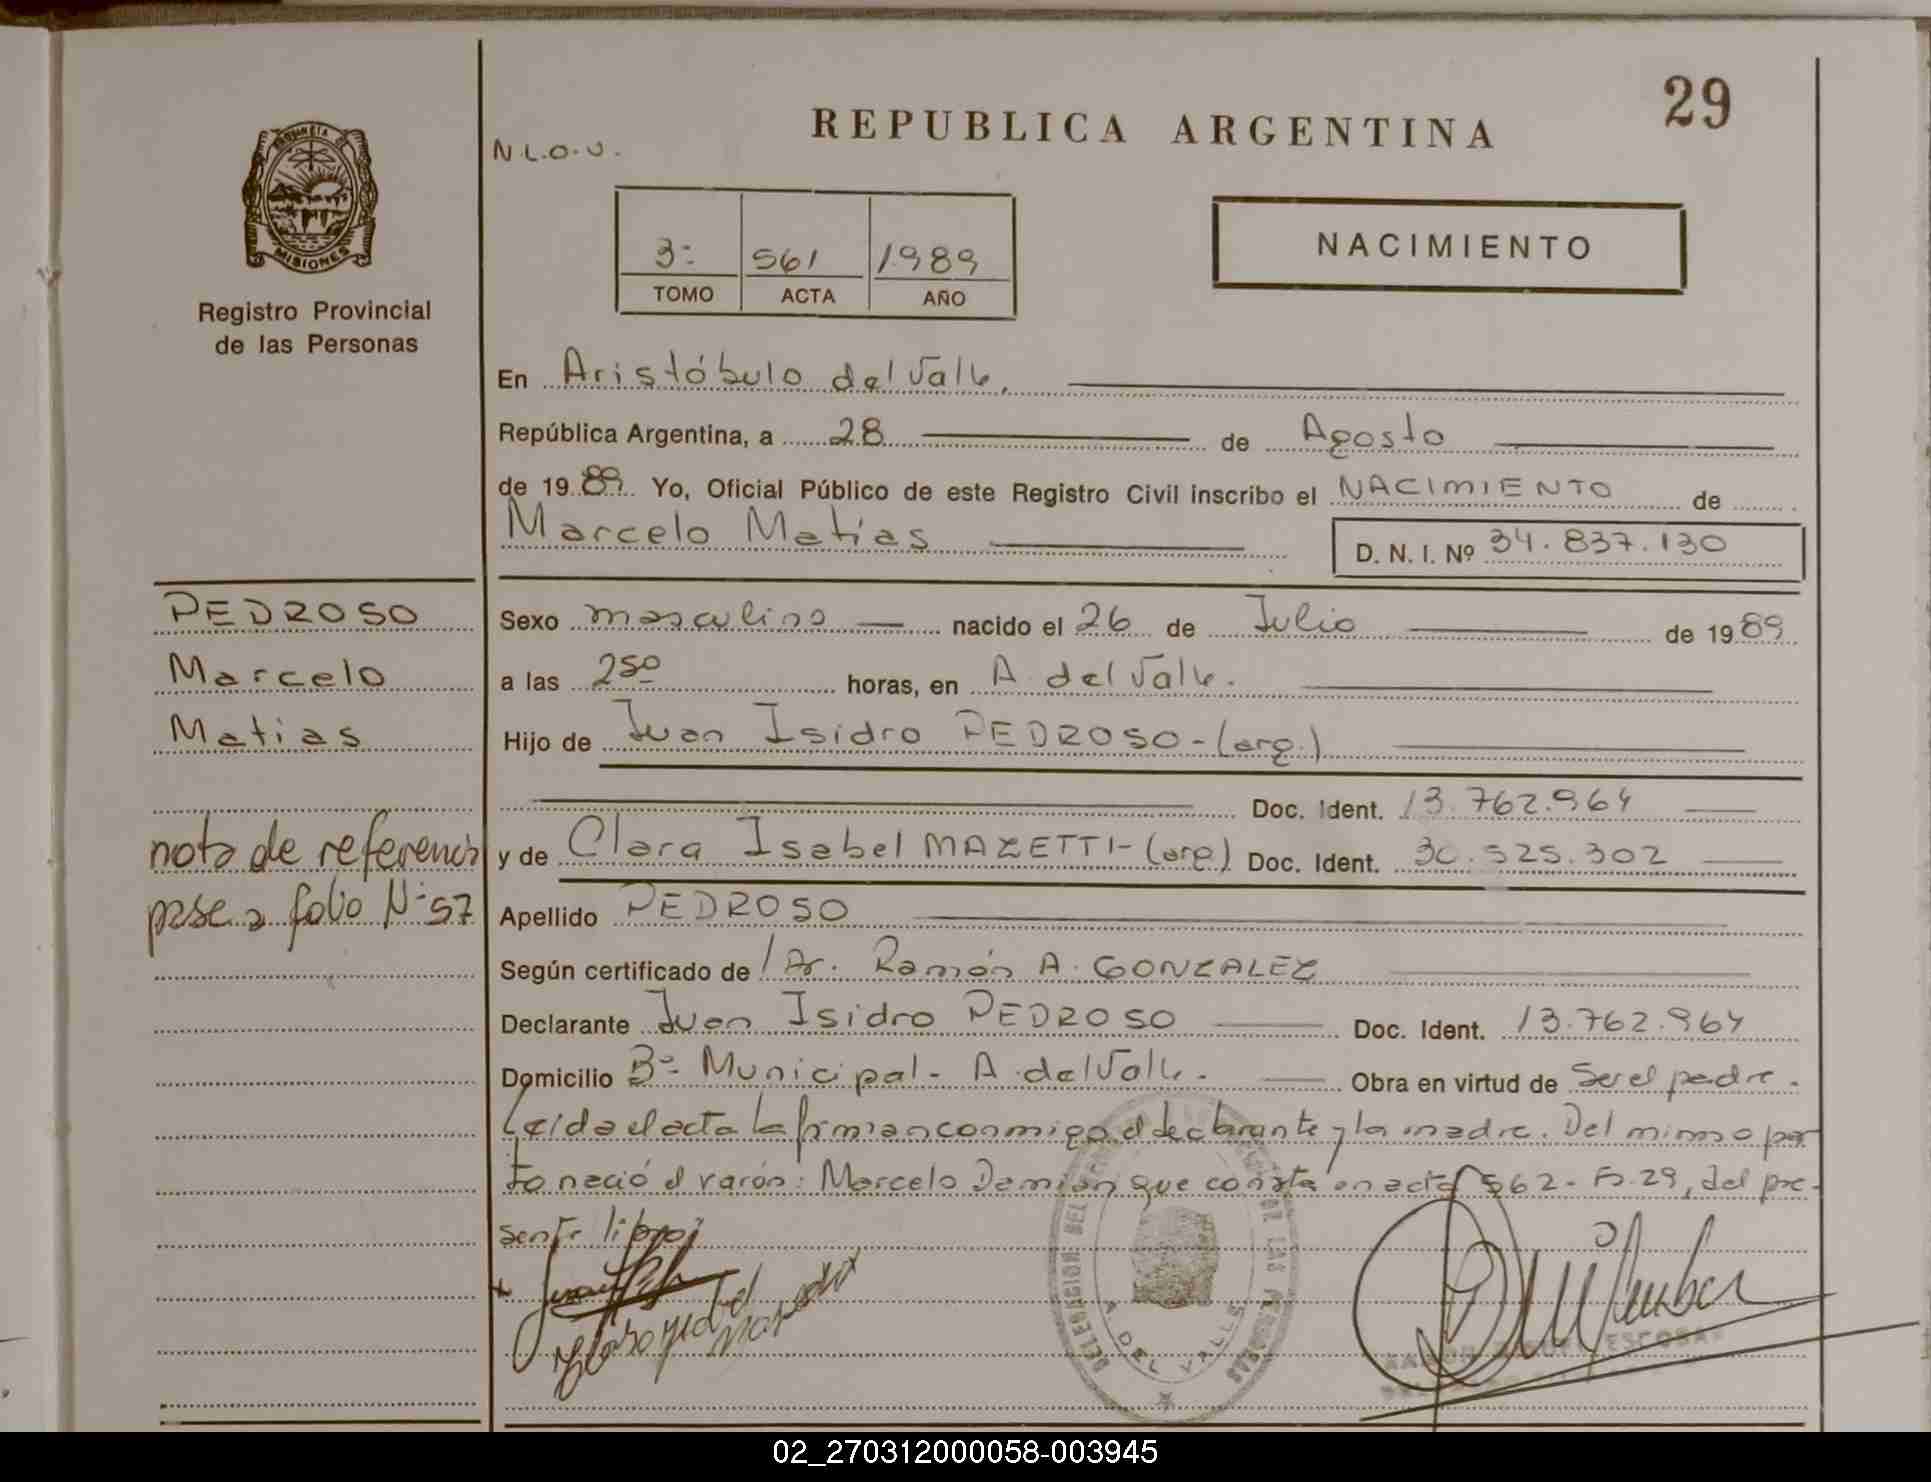 29
REPUBLICA ARGENTINA
N.L.O.U.
PROVINCIA
MISIONES
Registro Provincial
de las Personas
3º 561 1989
TOMO ACTA AÑO
NACIMIENTO
En Aristóbulo del Valle,
República Argentina, a 28 de Agosto
de 1989. Yo, Oficial Público de este Registro Civil inscribo el NACIMIENTO de
Marcelo Matías D. N. I. Nº 34.837.130
PEDROSO
Marcelo
Matias
nota de referencia
pase a folio Nº 57
Sexo masculino nacido el 26 de Julio de 1989
a las 2⁵⁰ horas, en A. del Valle.
Hijo de Juan Isidro PEDROSO-(arg.)
Doc. Ident. 13.762.964
y de Clara Isabel MAZETTI-(arg) Doc. Ident. 30.525.302
Apellido PEDROSO
Según certificado de Dr. Ramón A. GONZALEZ
Declarante Juan Isidro PEDROSO Doc. Ident. 13.762.964
Domicilio Bº Municipal- A. del Valle. Obra en virtud de Ser el padre.
Leída el acta la firman conmigo el declarante y la madre. Del mismo par
to nació el varón: Marcelo Damián que consta en acta 562- Fº.29, del pre-
sente libro
DELEGACION DEL DE LAS PERSONAS
A. DEL VALLE
ESCOBAR
02_270312000058-003945